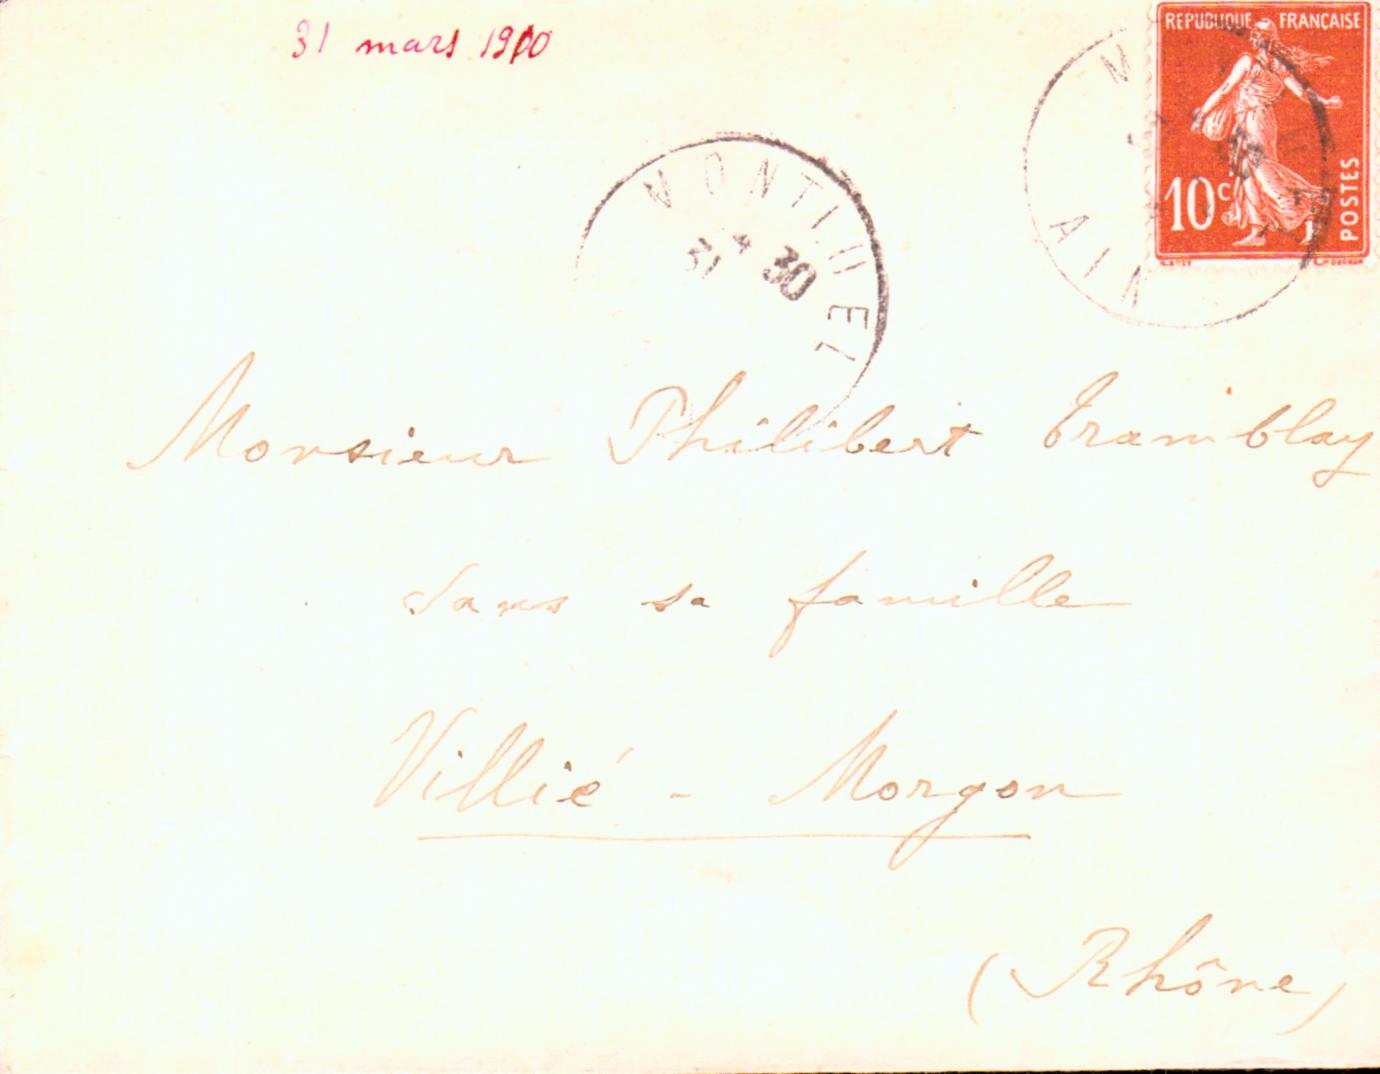 31 mars 1910
REPUBLIQUE FRANÇAISE
10c
POSTES
MONTLUEL
31 30
AIN
Monsieur Philibert Tramblay
dans sa famille
Villié-Morgon
(Rhône)